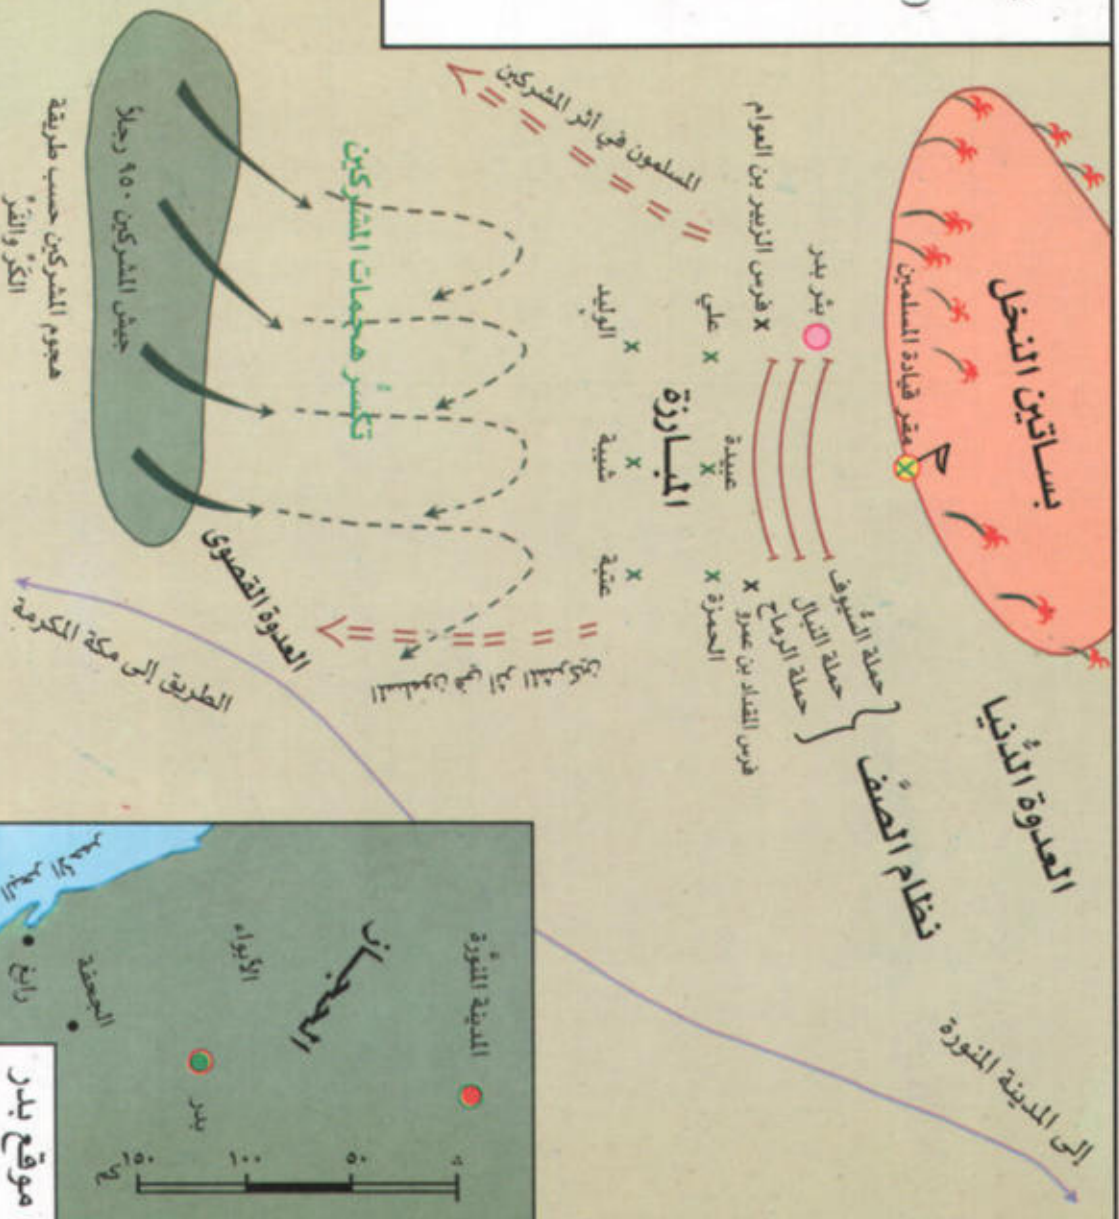 بساتين النخل
مقر قيادة المسلمين
العدوة الدُنيا
نظام الصَف
حملة السُيوف
حملة النبال
حملة الرماح
بئر بدر
فرس الزبير بن العوام
فرس المقداد بن عمرو
علي
عبيدة
الحمزة
المبارزة
الوليد
شيبة
عتبة
المسلمون في أثر المشركين
المسلمون في أثر المشركين
تكسُر هجمات المشركين
جيش المشركين ٩٥٠ رجلاً
هجوم المشركين حسب طريقة
الكَرِّ والفَرِّ
العدوة القصوى
الطريق إلى مكة المكرمة
إلى المدينة المنورة
المدينة المنورة
الحجاز
الأبواء
بدر
الجحفة
رابغ
البحر الأحمر
٠
٥٠
١٠٠
١٥٠
موقع بدر